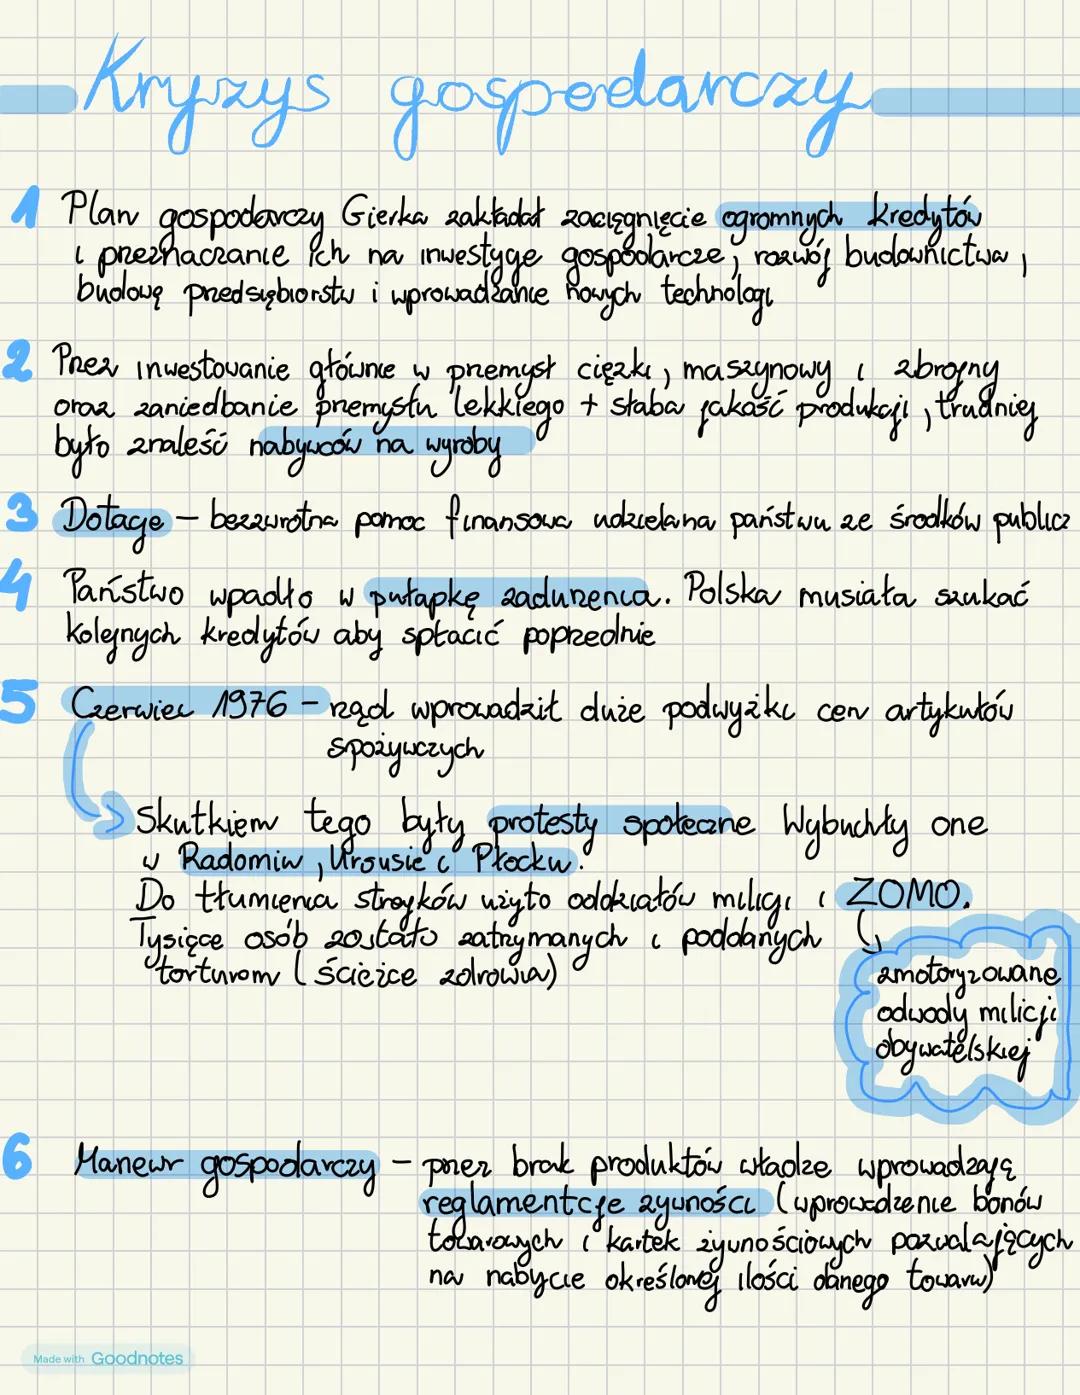 Kryzys gospodarczy
1 Plan gospodarczy Gierka zakładał zaciągnięcie ogromnych kredytów
i przeznaczanie ich na inwestycje gospodarcze, rozwój budownictwa,
budowę przedsiębiorstw i wprowadzanie nowych technologi
2 Przez inwestowanie głównie w przemysł ciężki, maszynowy i zbrojny
oraz zaniedbanie przemysłu lekkiego + słaba jakość produkcji, trudniej
było znaleść nabywców na wyroby
3 Dotacje – bezzwrotna pomoc finansowa udzielana państwu ze środków publicz
4 Państwo wpadło w pułapkę zadłużenia. Polska musiała szukać
kolejnych kredytów aby spłacić poprzednie
5 Czerwiec 1976 – rząd wprowadził duże podwyżki cen artykułów
spożywczych
Skutkiem tego były protesty społeczne Wybuchły one
w Radomiu, Ursusie i Płocku.
Do tłumienia strajków użyto oddziałów milicji i ZOMO.
Tysiące osób zostało zatrzymanych i poddanych
torturom (ścieżce zdrowia)
zmotoryzowane
odwody milicji
obywatelskiej
6 Manewr gospodarczy – przez brak produktów władze wprowadzają
reglamentcje żywności (wprowadzenie bonów
towarowych i kartek żywnościowych pozwalających
na nabycie określonej ilości danego towaru)
Made with Goodnotes